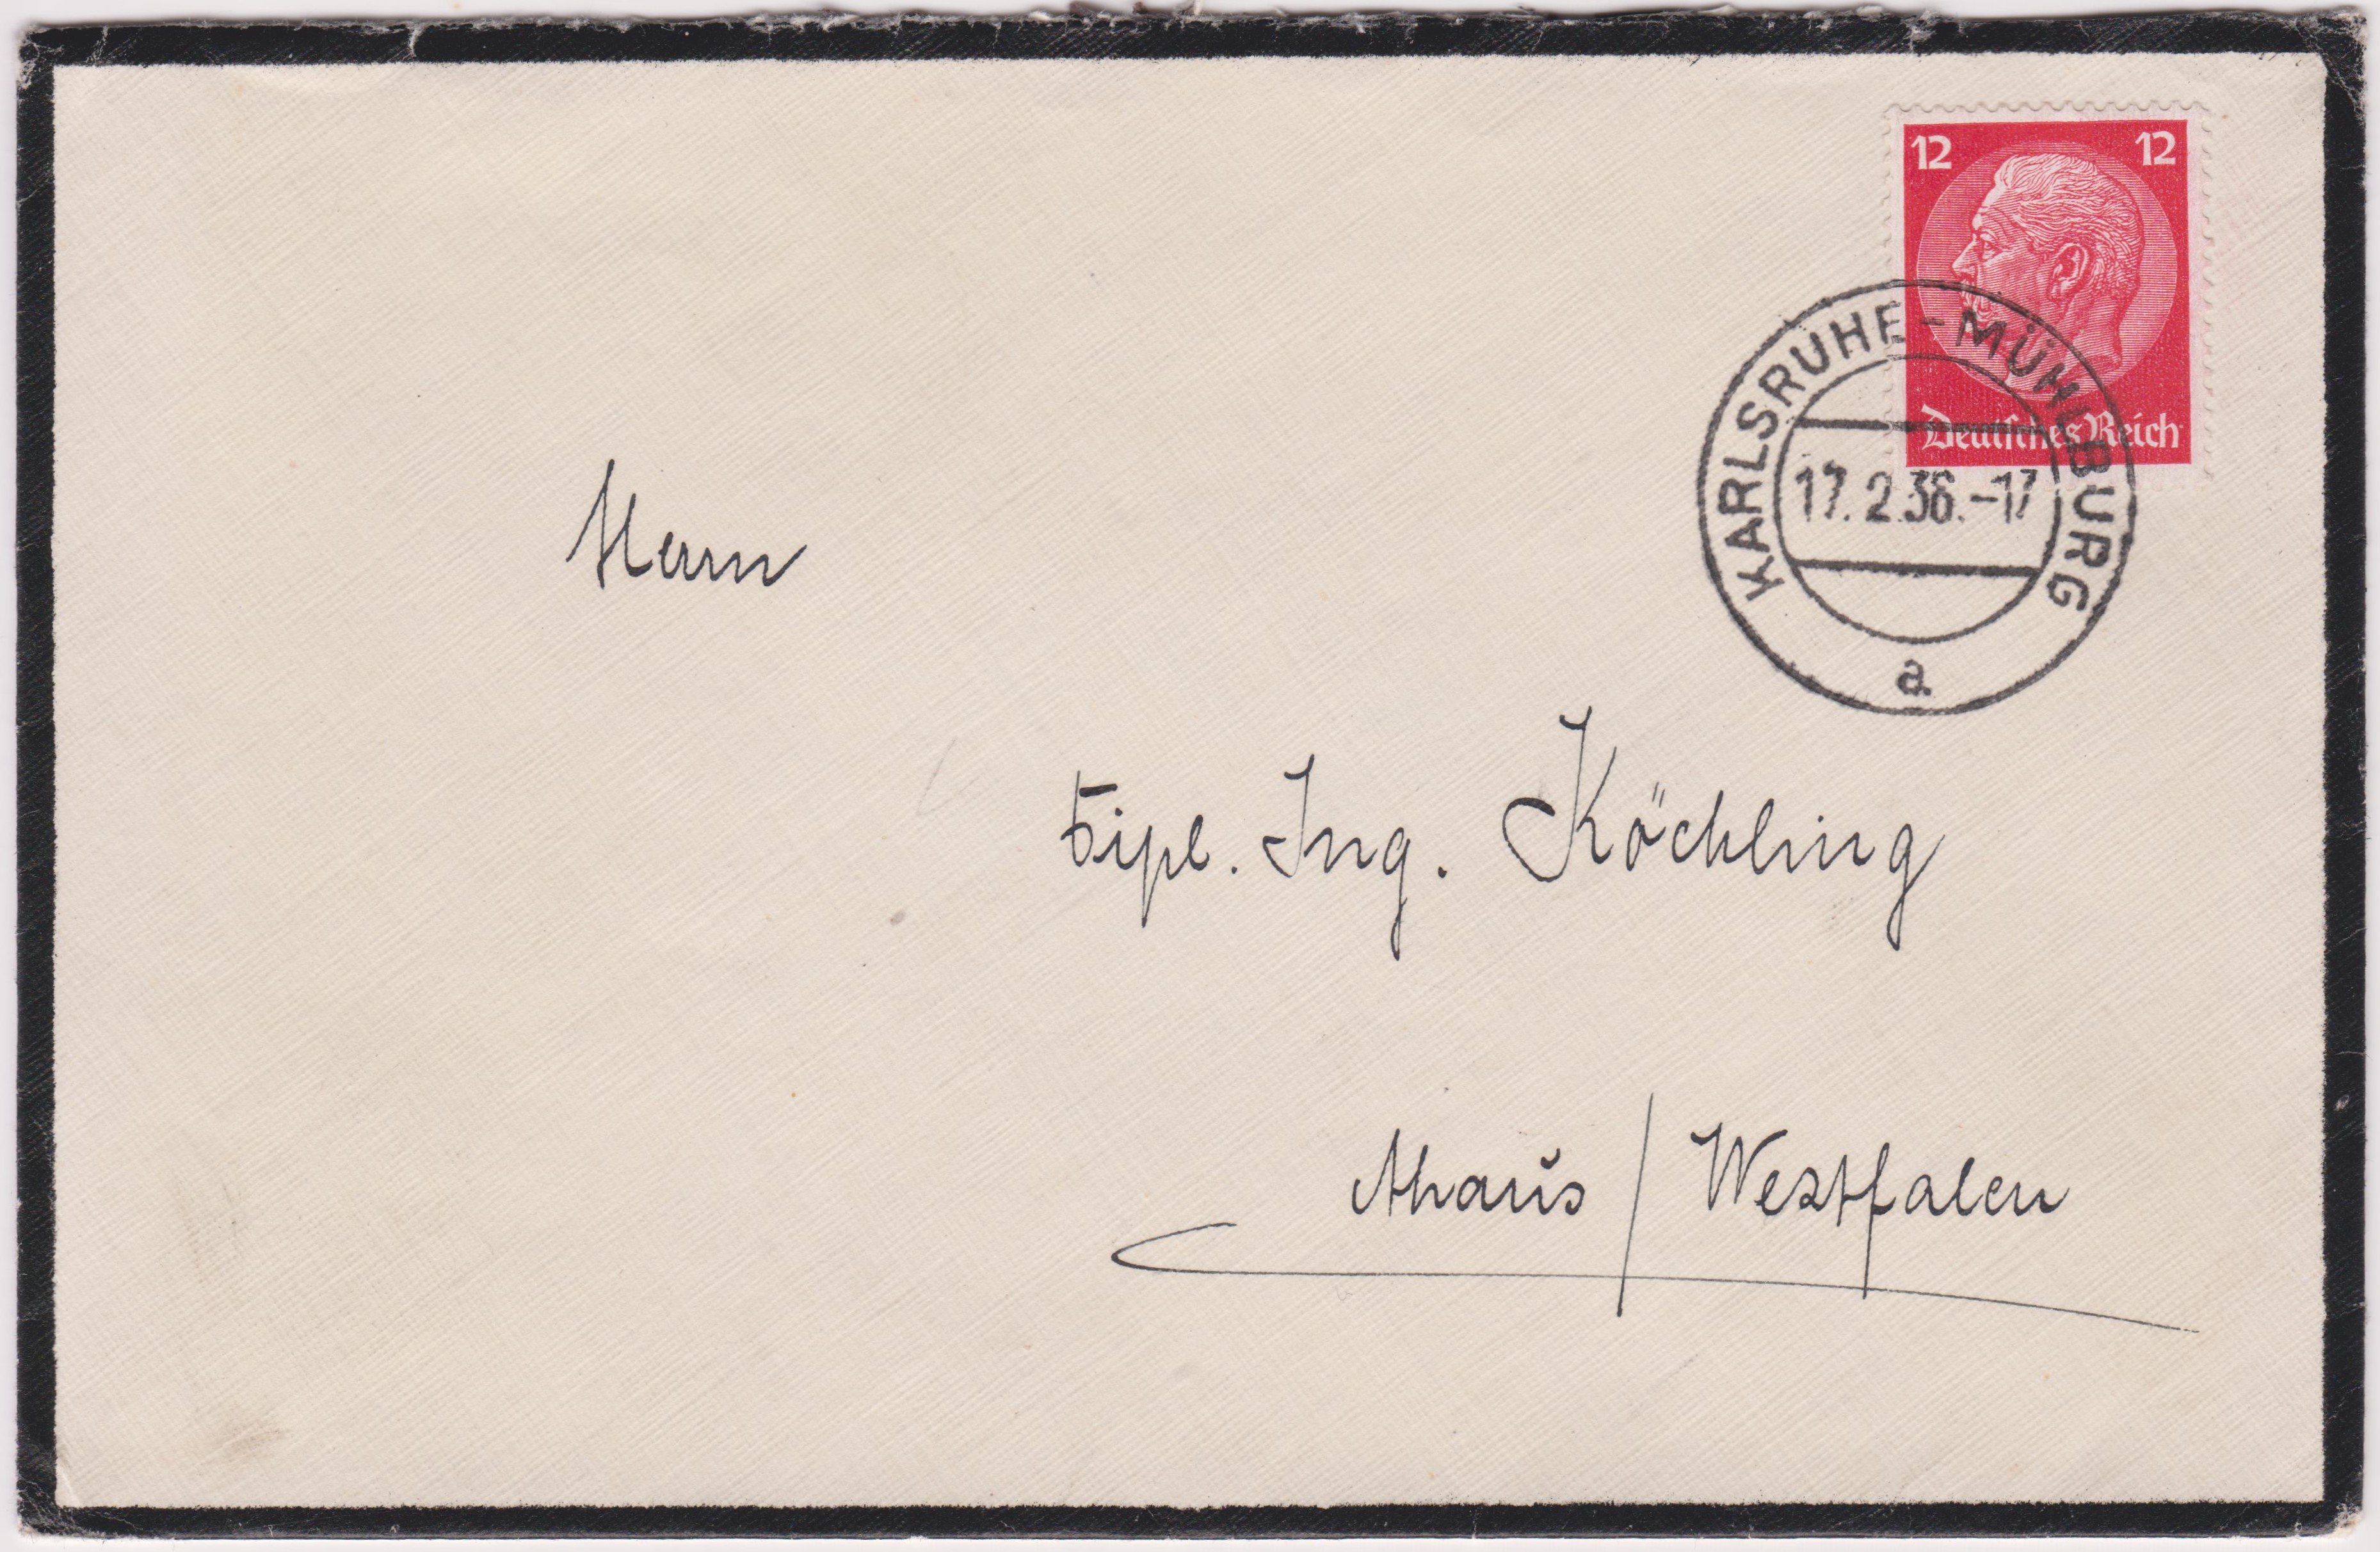 12 12
Deutsches Reich
KARLSRUHE-MÜHLBURG
17.2.36.-17
a
Herrn
Dipl. Ing. Köchling
Ahaus / Westfalen